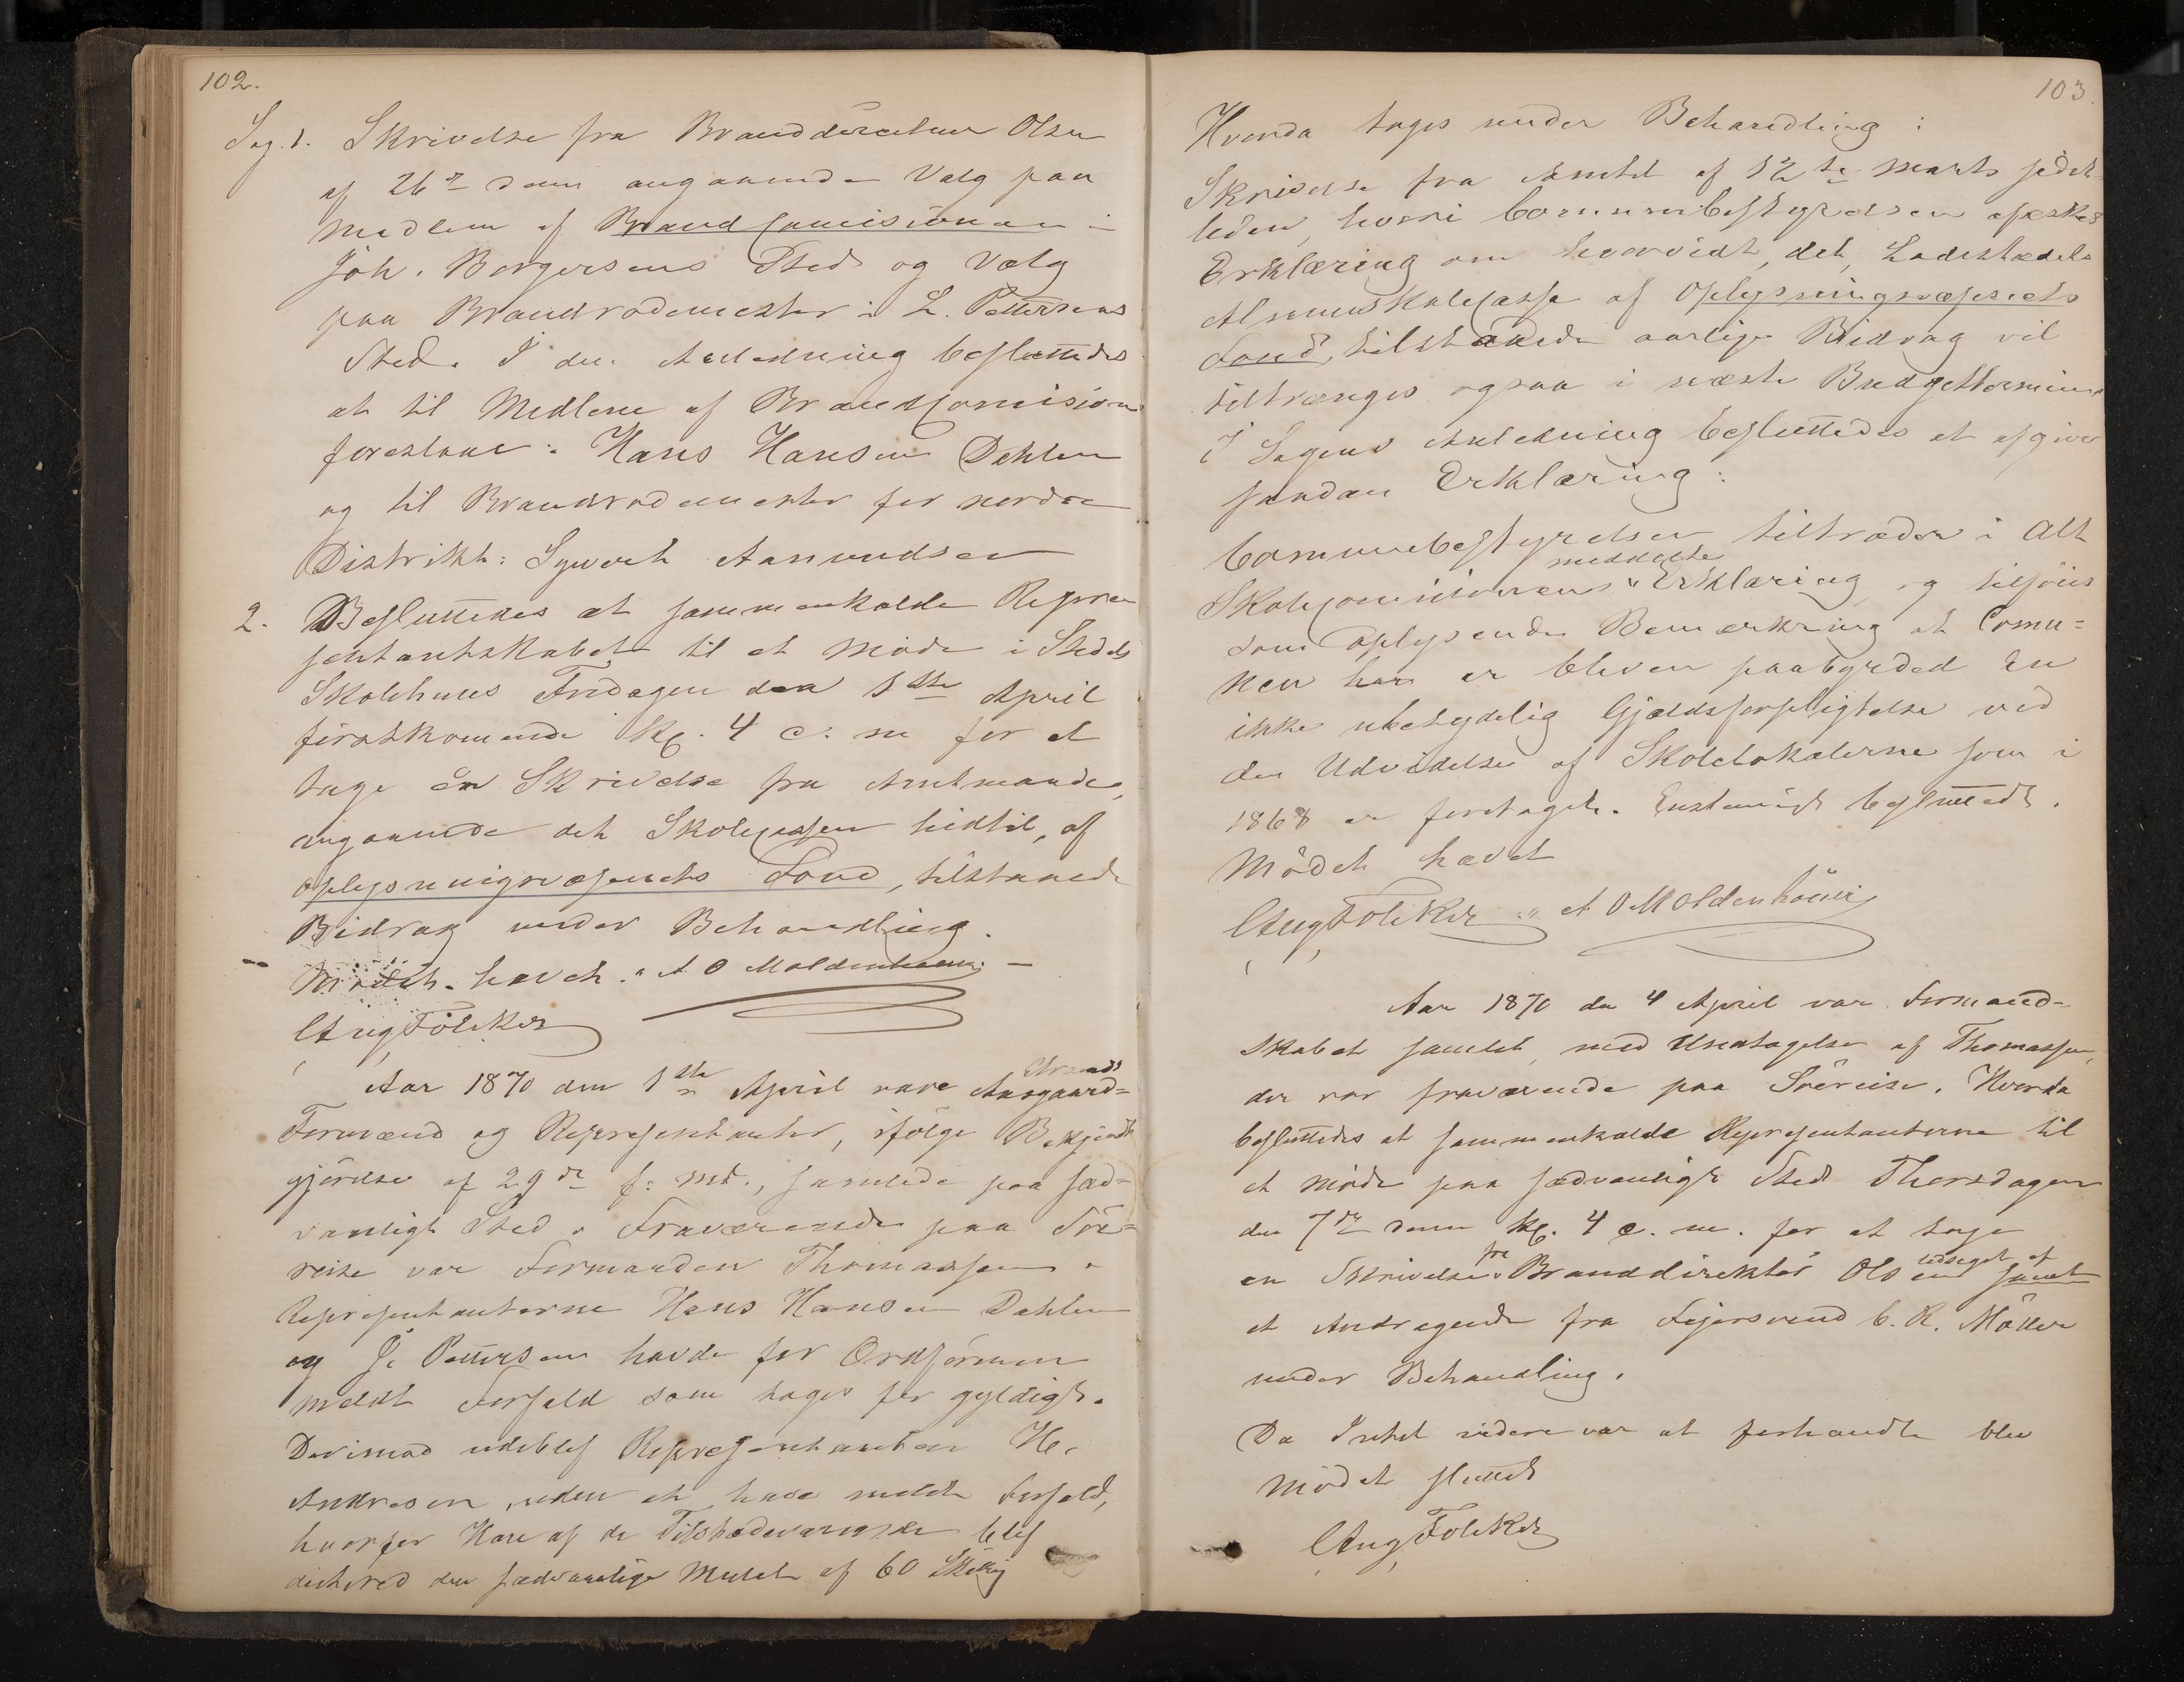 102.
Sag. 1. Skrivelse fra Branddirecteur Olsen
af 26de dens angaaende Valg paa
Medlem af Brandcomisionen i
Joh. Borgersens Sted og Valg
paa Brandrodemester i L. Pettersens
Sted. I den Anledning besluttedes
at til Medlem af Brandcomisionen
foreslaaes: Hans Hansen Dahlen
og til Brandrodemester for nordre
Distrikt: Syvert Aanundsen
2. Besluttedes at sammenkalde Repre-
sentantskabet til et Møde i Stedets
Skolehuus Fredagen den 1ste April
førstkomende Kl. 4 e. m for at
tage en Skrivelse fra Amtmanden,
angaaende det Skolecassen hidtil, af
Oplysningsvæsenets Fond, tilstaaede
Bidrag under Behandling.
Mödet hævet. A O Moldenhauer
CAugFölcker
Aar 1870 den 1ste April vare
Formænd og Representanter, ifölge Bekjendt-
gjörelse af 29de f: Md., samlede paa sæd-
vanligt Sted. Fraværende paa Söe-
reise var Formanden Thomassen.
Representanterne Hans Hansen Dahlen
og J. Pettersen havde for Ordföreren
meldt Forfald som toges for gyldigt.
Derimod udeblef Representanten He.
Andresen, uden at have meldt Forfald,
hvorfor Han af de Tilstædeværende blef
dicteret den sædvanlige Mulct af 60 Skilling
103.
Hvorda toges under Behandling:
Skrivelse fra Amtet af 12te Marts sidst-
leden, hvori Communebestyrelsen afæskes
Erklæring om hvorvidt, det, Ladestedets
Almueskolecasse af Oplysningsvæsenets
Fond, tilstaaede aarlige Bidrag vil
tiltrænges ogsaa i næste Budgettermin.
I Sagens Anledning besluttedes at afgive
saadan Erklæring:
Communebestyrelsen tiltræder i Alt
Skolecomisionens meddeelte Erklæring og tilföies
som oplysende Bemærkning at Comu=
nen her er bleven paabyrdet En
ikke ubetydelig Gjældsforpligtelse ved
den Udvidelse af Skolelokalerne som i
1868 er foretaget. Enstemigt besluttedt.
Mödet hævet
CAugFölcker A O Moldenhauer
Aar 1870 den 4 April var Formand-
skabet samlet, med Undtagelse af Thomassen,
der var fraværende paa Söereise. Hvorda
besluttedes at sammenkalde Representanterne til
et Möde paa sædvanligt Sted Thorsdagen
den 7de dens Kl. 4 e. m. for at tage
en Skrivelse fra Branddirektör Olsen samt
et Andragende fra Fejersvend C. R. Möller
under Behandling.
Da Intet videre var at forhandle blev
Mödet sluttet
CAugFölcker